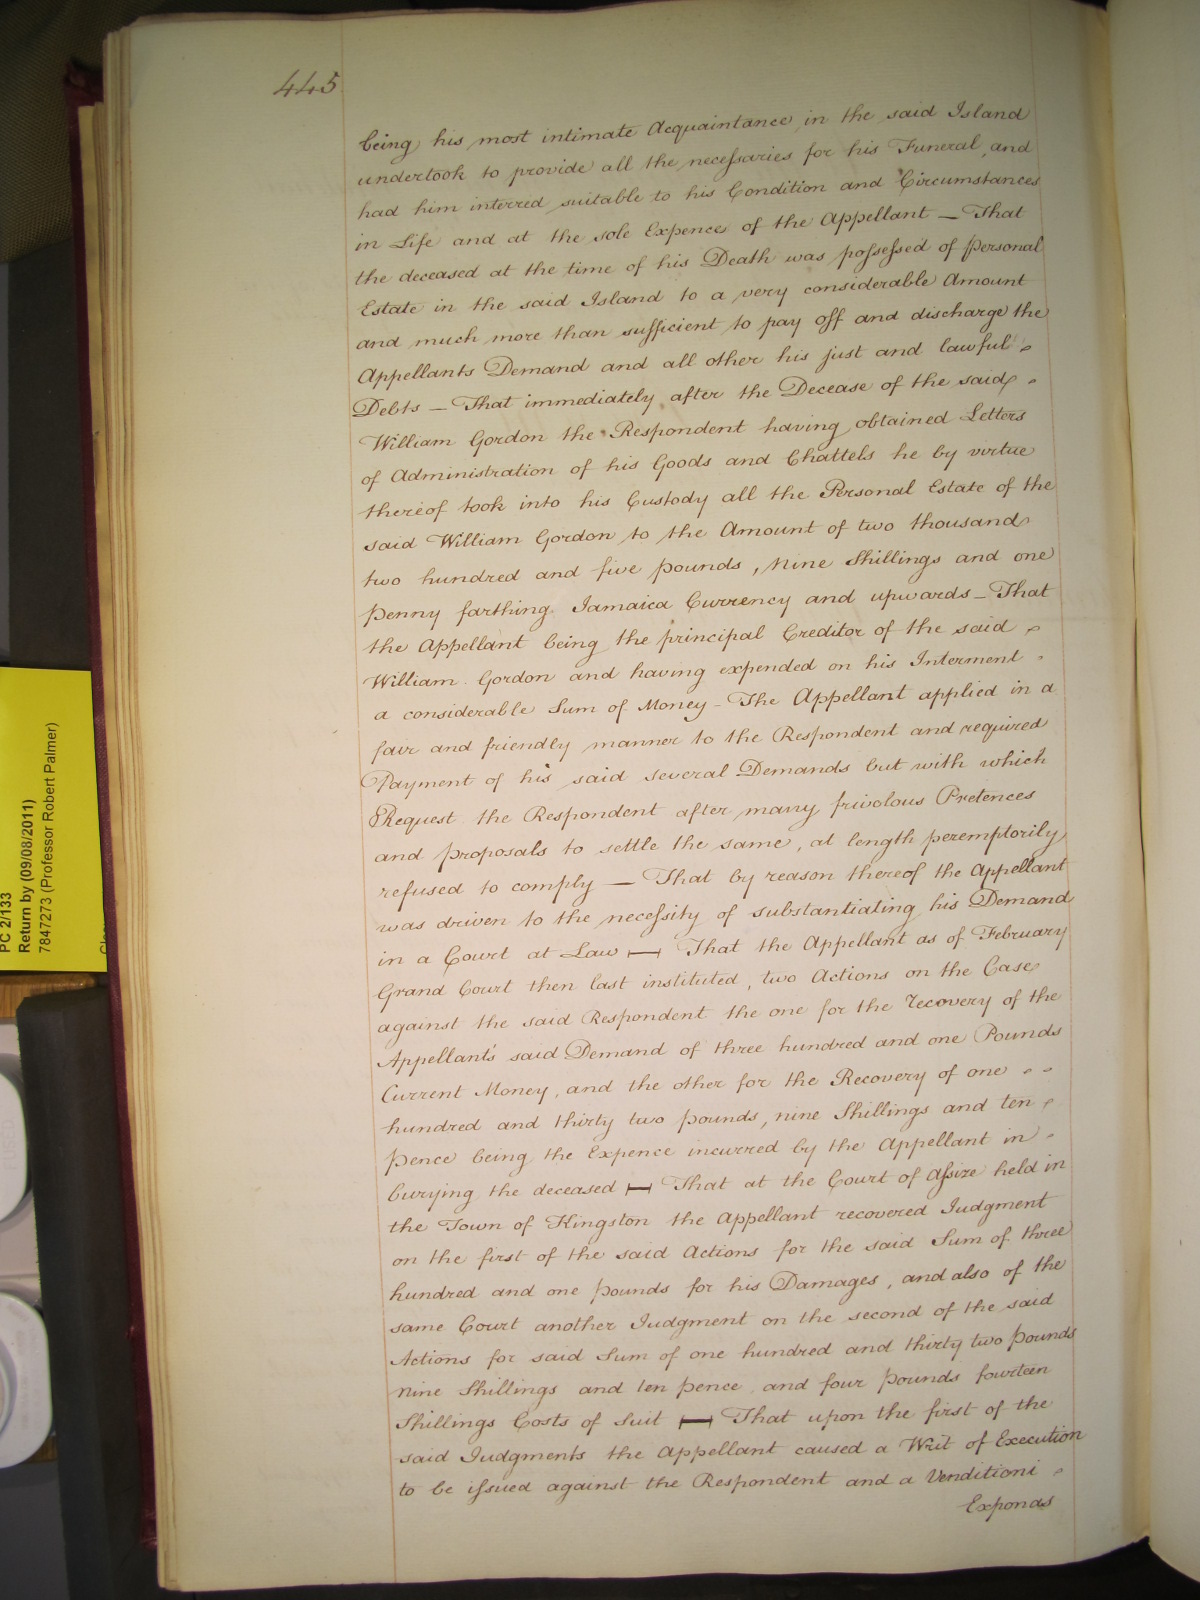 445
being his most intimate Acquaintance in the said Island
undertook to provide all the necessaries for his Funeral, and
had him interred suitable to his Condition and Circumstances
in Life and at the sole Expence of the Appellant — That
the deceased at the time of his Death was possessed of personal
Estate in the said Island to a very considerable Amount
and much more than sufficient to pay off and discharge the
Appellants Demand and all other his just and lawful
Debts — That immediately after the Decease of the said
William Gordon the Respondent having obtained Letters
of Administration of his Goods and Chattels he by virtue
thereof took into his Custody all the Personal Estate of the
said William Gordon to the Amount of two thousand
two hundred and five pounds, Nine Shillings and one
Penny farthing Jamaica Currency and upwards — That
the Appellant being the principal Creditor of the said
William Gordon and having expended on his Interment
a considerable Sum of Money - The Appellant applied in a
fair and friendly manner to the Respondent and required
Payment of his said several Demands but with which
Request the Respondent after many frivolous Pretences
and proposals to settle the same, at length peremptorily
refused to comply — That by reason thereof the Appellant
was driven to the necessity of substantiating his Demand
in a Court at Law — That the Appellant as of February
Grand Court then last instituted, two Actions on the Case
against the said Respondent the one for the recovery of the
Appellant's said Demand of three hundred and one Pounds
Current Money, and the other for the Recovery of one
hundred and thirty two pounds, nine Shillings and ten
pence being the Expence incurred by the Appellant in
burying the deceased — That at the Court of Assize held in
the Town of Kingston the Appellant recovered Judgment
on the first of the said Actions for the said Sum of three
hundred and one pounds for his Damages, and also of the
same Court another Judgment on the second of the said
Actions for said Sum of one hundred and thirty two pounds
nine Shillings and ten pence and four pounds fourteen
Shillings Costs of Suit — That upon the first of the
said Judgments the Appellant caused a Writ of Execution
to be issued against the Respondent and a Venditioni
Exponas
PC 2/133
Return by (09/08/2011)
7847273 (Professor Robert Palmer)